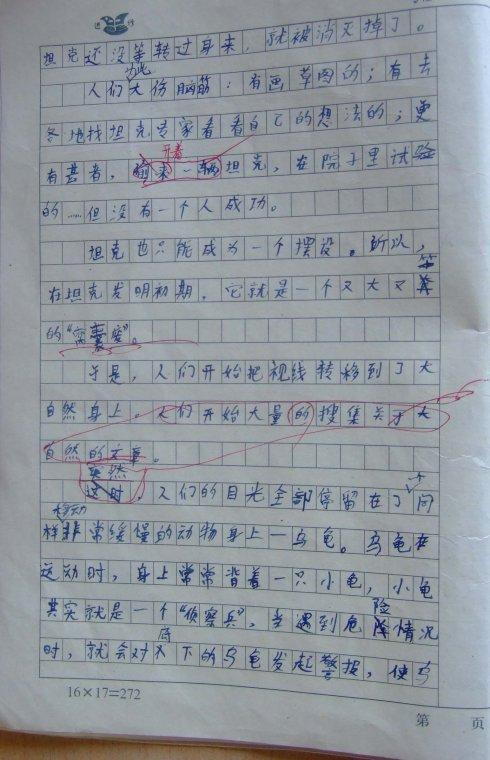 坦克还没等转过身来，就被消灭掉了。
为此
人们大伤脑筋：有画草图的；有去
各地找坦克专家看看自己的想法的；更
开着
有甚者，偷来一辆坦克，在院子里试验
的……但没有一个人成功。
坦克也只能成为一个摆设。所以，
在坦克发明初期，它就是一个又大又笨
的“窝囊废”。
于是，人们开始把视线转移到了大
自然身上。人们开始大量的搜集关于大
自然的文章。
突然
这时，人们的目光全部停留在了同
移动
样非常缓慢的动物身上—乌龟。乌龟在
运动时，身上常常背着一只小龟，小龟
其实就是一个“侦察兵”，当遇到危险情况
时，就会对底下的乌龟发起警报，使乌
16×17=272
第 页